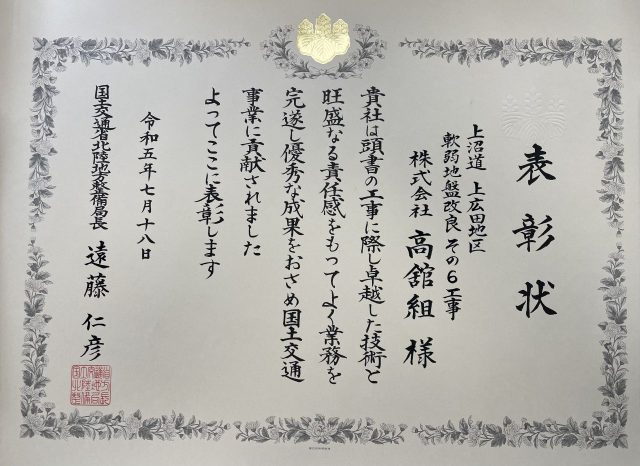 表彰状
上沼道 上広田地区
軟弱地盤改良 その6工事
株式会社 高舘組 様
貴社は頭書の工事に際し卓越した技術と
旺盛なる責任感をもってよく業務を
完遂し優秀な成果をおさめ国土交通
事業に貢献されました
よってここに表彰します
令和五年七月十八日
国土交通省北陸地方整備局長 遠藤 仁彦